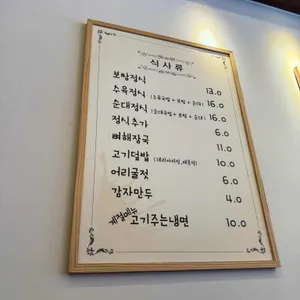 식사류
보쌈정식 13.0
수육정식 (수육국밥 + 보쌈 + 순대) 16.0
순대정식 (순대국밥 + 보쌈 + 순대) 16.0
정식추가 6.0
뼈해장국 11.0
고기덮밥 (데리야끼맛, 매콤맛) 10.0
어리굴젓 6.0
감자만두 4.0
계절메뉴 고기주는냉면 10.0